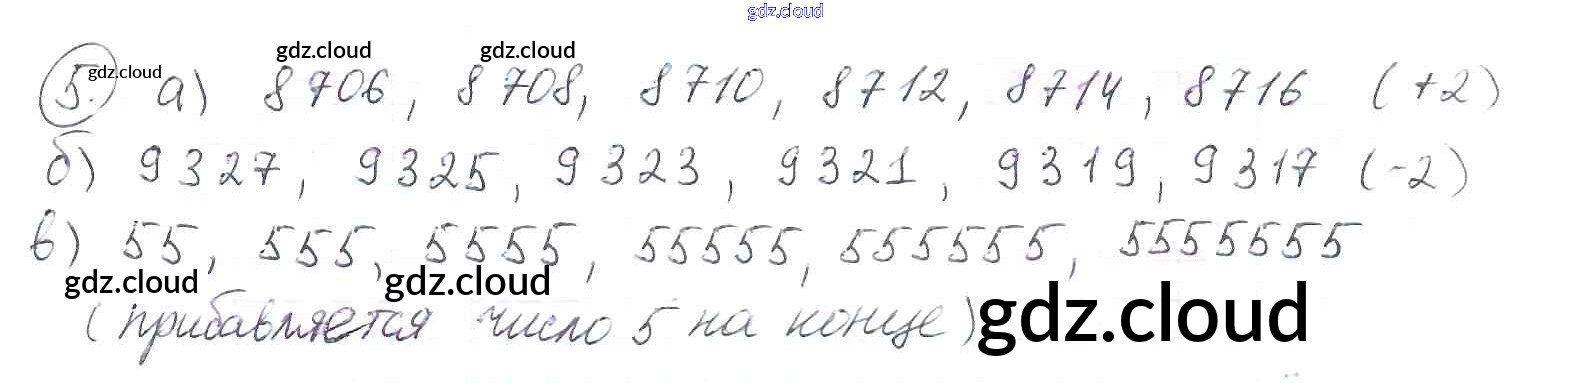 gdz.cloud
gdz.cloud gdz.cloud
5. gdz.cloud а) 8706, 8708, 8710, 8712, 8714, 8716 (+2)
б) 9327, 9325, 9323, 9321, 9319, 9317 (-2)
в) 55, 555, 5555, 55555, 555555, 5555555
gdz.cloud gdz.cloud
(прибавляется число 5 на конце) gdz.cloud